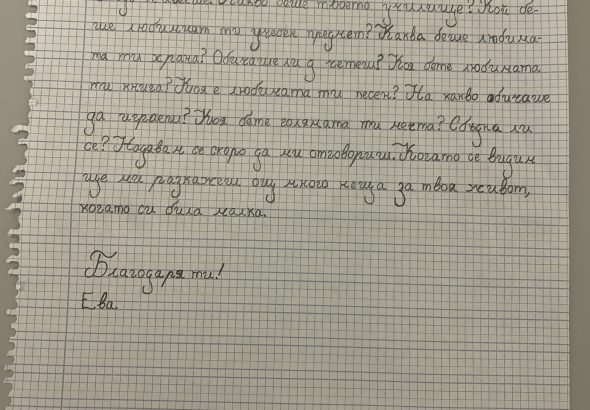 беше твоето училище? Кой бе-
ше любимият ти учебен предмет? Каква беше любима-
та ти храна? Обичаше ли д четеш? Коя бете любимата
ти книга? Коя е любимата ти песен? На какво обичаше
да играеш? Коя бете голямата ти мечта? Сбъдна ли
се? Надявам се скоро да ми отговориш. Когато се видим
ще ми разкажеш още много неща за твоя живот,
когато си била малка.
Благодаря ти!
Ева